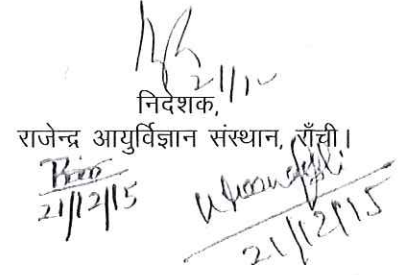 21/12
निदेशक,
राजेन्द्र आयुर्विज्ञान संस्थान, राँची।
21/12/15
21/12/15